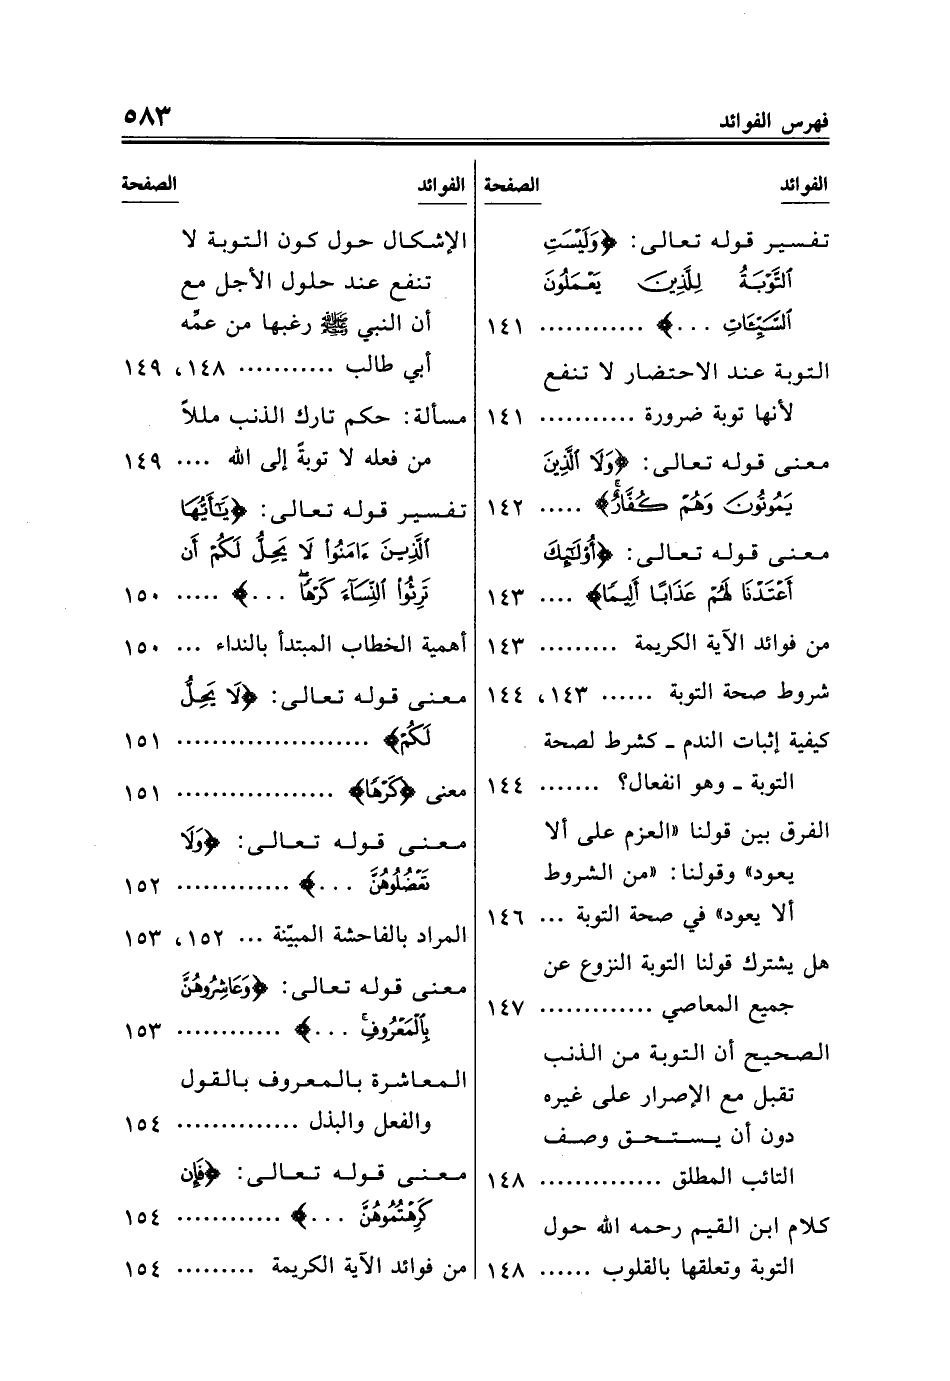 فهرس الفوائد ٥٨٣
الفوائد الصفحة
تفسير قوله تعالى: ﴿وَلَيْسَتِ
ٱلتَّوْبَةُ لِلَّذِينَ يَعْمَلُونَ
ٱلسَّيِّـَٔاتِ ...﴾ ............ ١٤١
التوبة عند الاحتضار لا تنفع
لأنها توبة ضرورة ........... ١٤١
معنى قوله تعالى: ﴿وَلَا ٱلَّذِينَ
يَمُوتُونَ وَهُمْ كُفَّارٌ﴾ ..... ١٤٢
معنى قوله تعالى: ﴿أُوْلَٰٓئِكَ
أَعْتَدْنَا لَهُمْ عَذَابًا أَلِيمًا﴾ .... ١٤٣
من فوائد الآية الكريمة ......... ١٤٣
شروط صحة التوبة ...... ١٤٣، ١٤٤
كيفية إثبات الندم ـ كشرط لصحة
التوبة ـ وهو انفعال؟ ....... ١٤٤
الفرق بين قولنا «العزم على ألا
يعود» وقولنا: «من الشروط
ألا يعود» في صحة التوبة ... ١٤٦
هل يشترك قولنا التوبة النزوع عن
جميع المعاصي ............. ١٤٧
الصحيح أن التوبة من الذنب
تقبل مع الإصرار على غيره
دون أن يستحق وصف
التائب المطلق .............. ١٤٨
كلام ابن القيم رحمه الله حول
التوبة وتعلقها بالقلوب ...... ١٤٨
الفوائد الصفحة
الإشكال حول كون التوبة لا
تنفع عند حلول الأجل مع
أن النبي ﷺ رغبها من عمِّه
أبي طالب ........... ١٤٨، ١٤٩
مسألة: حكم تارك الذنب مللاً
من فعله لا توبةً إلى الله .... ١٤٩
تفسير قوله تعالى: ﴿يَٰٓأَيُّهَا
ٱلَّذِينَ ءَامَنُوا۟ لَا يَحِلُّ لَكُمْ أَن
تَرِثُوا۟ ٱلنِّسَآءَ كَرْهًاۖ ...﴾ ..... ١٥٠
أهمية الخطاب المبتدأ بالنداء ... ١٥٠
معنى قوله تعالى: ﴿لَا يَحِلُّ
لَكُمْ﴾ ...................... ١٥١
معنى ﴿كَرْهًا﴾ .................. ١٥١
معنى قوله تعالى: ﴿وَلَا
تَعْضُلُوهُنَّ ...﴾ ............. ١٥٢
المراد بالفاحشة المبيّنة ... ١٥٢، ١٥٣
معنى قوله تعالى: ﴿وَعَاشِرُوهُنَّ
بِٱلْمَعْرُوفِۚ ...﴾ ............ ١٥٣
المعاشرة بالمعروف بالقول
والفعل والبذل .............. ١٥٤
معنى قوله تعالى: ﴿فَإِن
كَرِهْتُمُوهُنَّ ...﴾ ............ ١٥٤
من فوائد الآية الكريمة ......... ١٥٤